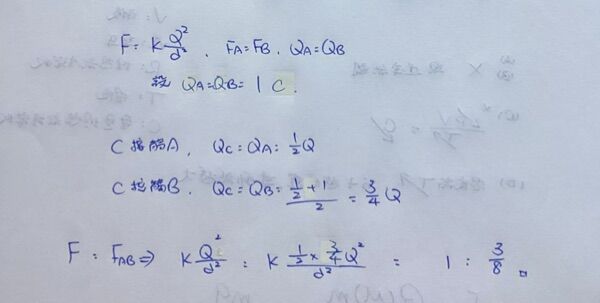 F = K Q²/d² . FA = FB . QA = QB
設 QA = QB = 1 C .
C 接觸A , QC = QA = 1/2 Q
C 接觸B , QC = QB = (1/2 + 1)/2 = 3/4 Q
F : FAB ⇒ K Q²/d² : K (1/2 × 3/4 Q²)/d² = 1 : 3/8 。